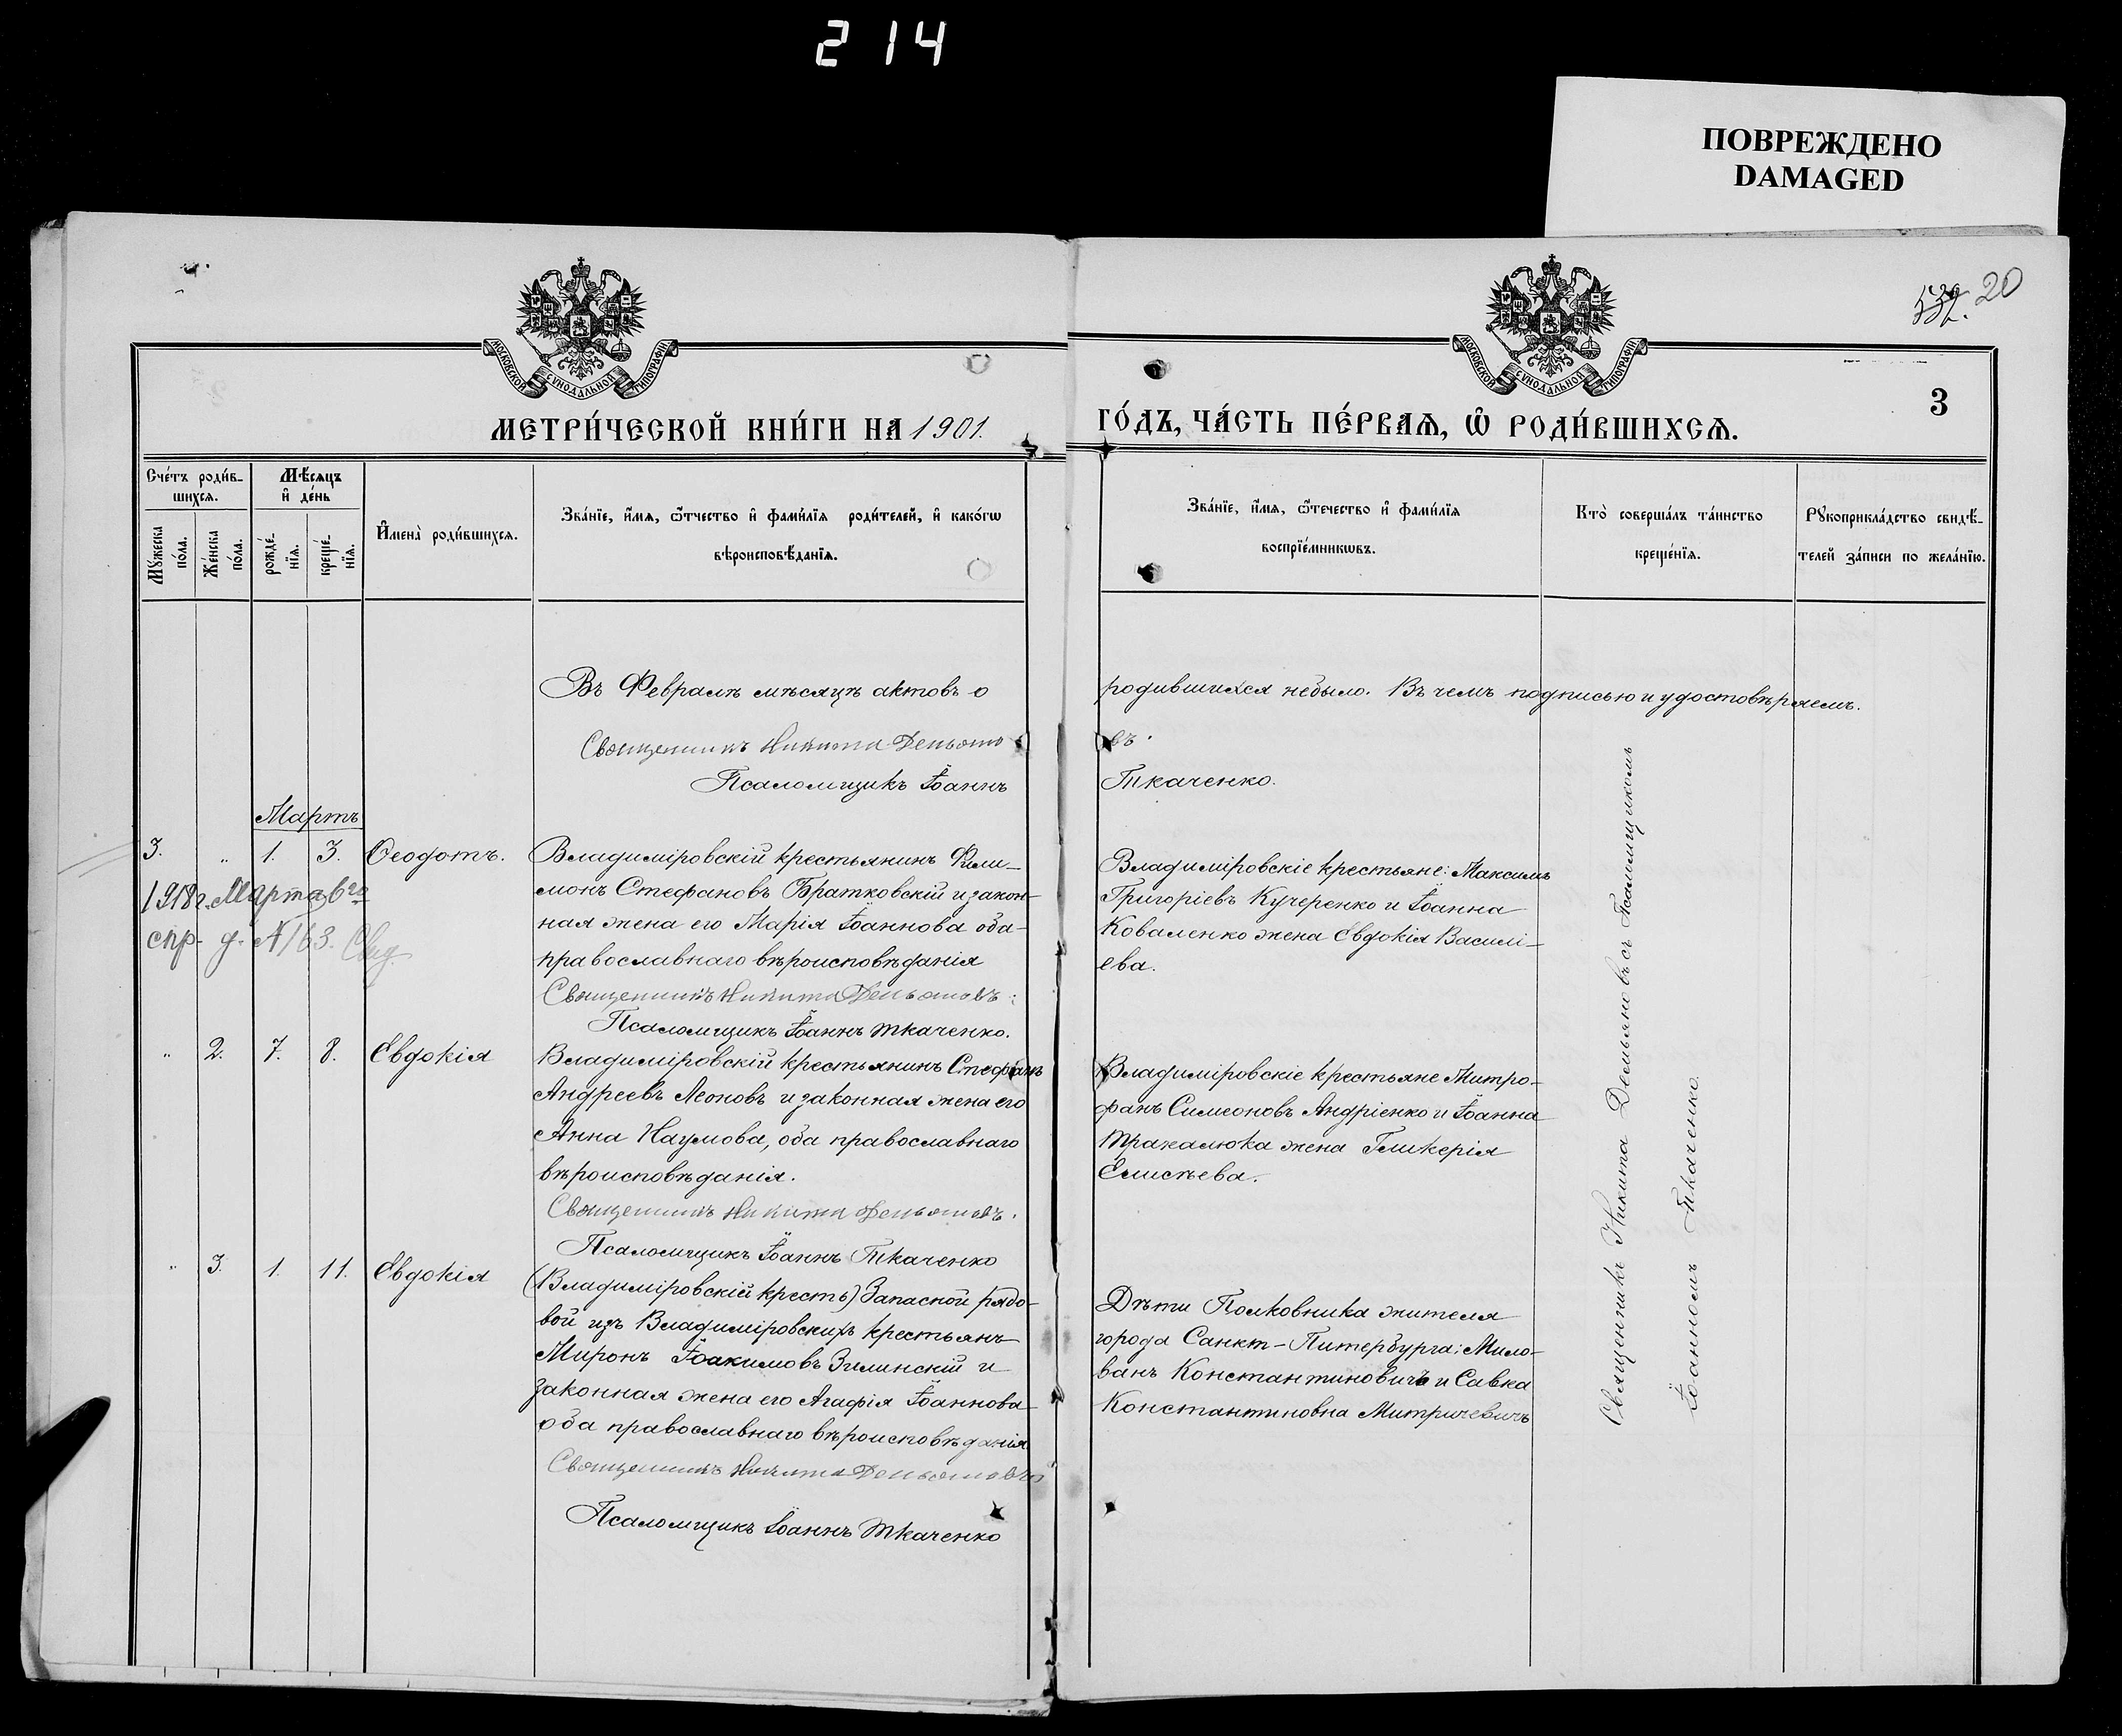 214
ПОВРЕЖДЕНО
DAMAGED
20
МОСКОВСКОЙ СѴНОДАЛЬНОЙ ТИПОГРАФІИ
МОСКОВСКОЙ СѴНОДАЛЬНОЙ ТИПОГРАФІИ
3
МЕТРИ́ЧЕСКОЙ КНИ́ГИ НА 1901.
ГО́ДЪ, ЧА́СТЬ ПЕ́РВАѦ, Ѽ РОДИ́ВШИХСѦ.
Сче́тъ роди́в-
шихсѧ.
Мѣ́сѧцъ
и҆ де́нь
Мꙋ́жеска
по́ла.
Же́нска
по́ла.
рожде́-
нїѧ.
креще́-
нїѧ.
И҆мена̀ роди́вшихсѧ.
Зва́нїе, и҆́мѧ, ѻ҆́тчество и҆ фами́лїѧ роди́телей, и҆ како́гѡ
вѣроисповѣ́данїѧ.
Зва́нїе, и҆́мѧ, ѻ҆́течество и҆ фами́лїѧ
воспрїе́мникѡвъ.
Кто̀ соверша́лъ та́инство
креще́нїѧ.
Рꙋкоприкла́дство свидѣ́-
телей за́писи по жела́нїю.
Въ Февралѣ мѣсяцѣ актовъ о
родившихся небыло. Въ чемъ подписью и удостовѣряемъ.
Священникъ Никита Демьяно
въ.
Псаломщикъ Іоаннъ
Ткаченко.
Мартъ
3. " 1. 3. Ѳеодотъ.
1918 г. Марта 6го
спр. д. №163.
Владиміровскій крестьянинъ Фили-
монъ Стефановъ Братковскій и закон-
ная жена его Марія Іоаннова оба-
православнаго вѣроисповѣданія
Священникъ Никита Демьяновъ.
Псаломщикъ Іоаннъ Ткаченко.
Владиміровскіе крестьяне: Максимъ
Григоріевъ Кучеренко и Іоанна
Коваленко жена Евдокія Василі-
ева.
" 2. 7. 8. Евдокія
Владиміровскій крестьянинъ Стефанъ
Андреевъ Леоновъ и законная жена его
Анна Наумова, оба православнаго
вѣроисповѣданія.
Священникъ Никита Демьяновъ.
Псаломщикъ Іоаннъ Ткаченко
Владиміровскіе крестьяне Митро-
фанъ Симеоновъ Андріенко и Іоанна
жена Гликерія
Елисѣева.
" 3. 1. 11. Евдокія
(Владиміровскій кресть) Запасной рядо-
вой изъ Владиміровскихъ крестьянъ
Миронъ Іоакимовъ Зилинскій и
законная жена его Агафія Іоаннова
оба православнаго вѣроисповѣданія
Священникъ Никита Демьяновъ
Псаломщикъ Іоаннъ Ткаченко
Дѣти Полковника жителя
города Санкт-Питербурга: Мило-
ванъ Константиновичъ и Савка
Константиновна Митричевичъ
Священникъ Никита Демьяновъ съ Псаломщикомъ
Іоанномъ Ткаченко.